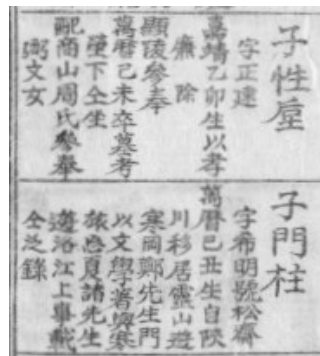 子性垕
字正達
嘉靖乙卯生以孝
薦除
顯陵參奉
萬曆己未卒墓考
塋下仝坐
配商山周氏參奉
弼文女
子門柱
字希明號松齋
萬曆己丑生自陜
川移居靈山遊
寒岡鄭先生門
以文學著與寒
旅愚夏諸先生
遊洛江上事載
仝泛錄